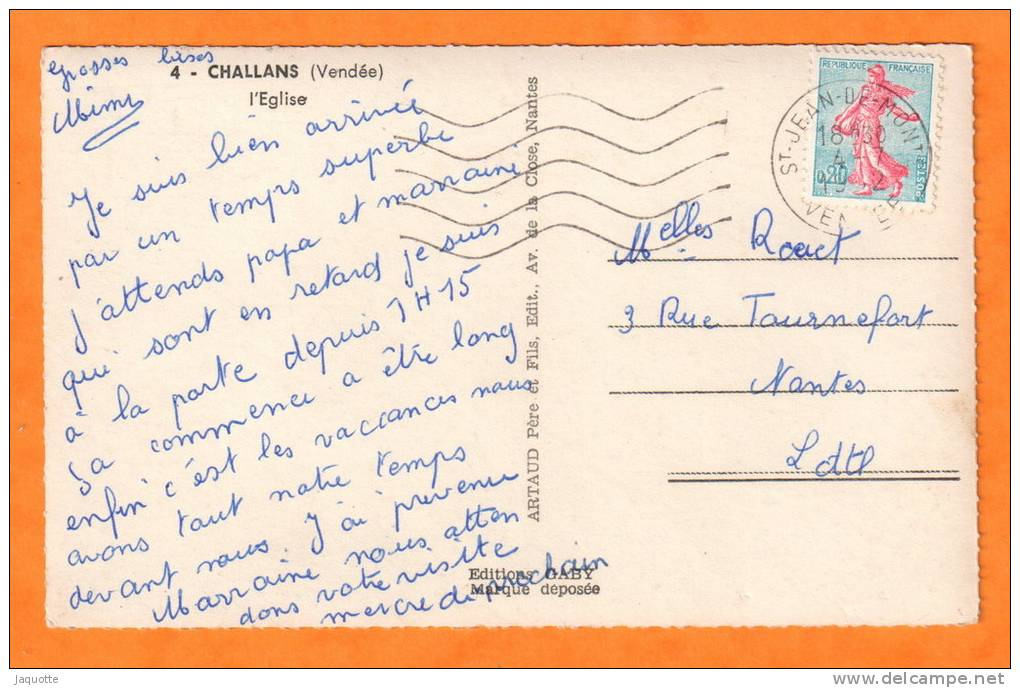 grosses bises
Mimi
4 - CHALLANS (Vendée)
l'Eglise
Je suis bien arrivée
par un temps superbe
j'attends papa et marraine
qui sont en retard je suis
à la porte depuis 1H15
ça commence a être long
enfin c'est les vaccances nous
avons tout notre temps
devant nous J'ai prévenue
Marraine nous atten
dons votre visite
mercredi prochain
ARTAUD Père et Fils, Edit., Av. de la Close, Nantes
Editions GABY
Marque deposée
REPUBLIQUE FRANÇAISE
0,20
POSTES
ST-JEAN-DE-MONT
18 H30
4
VENDEE
Melles Rouet
3 Rue Tournefort
Nantes
L Atl
Jaquotte
delcampe.net